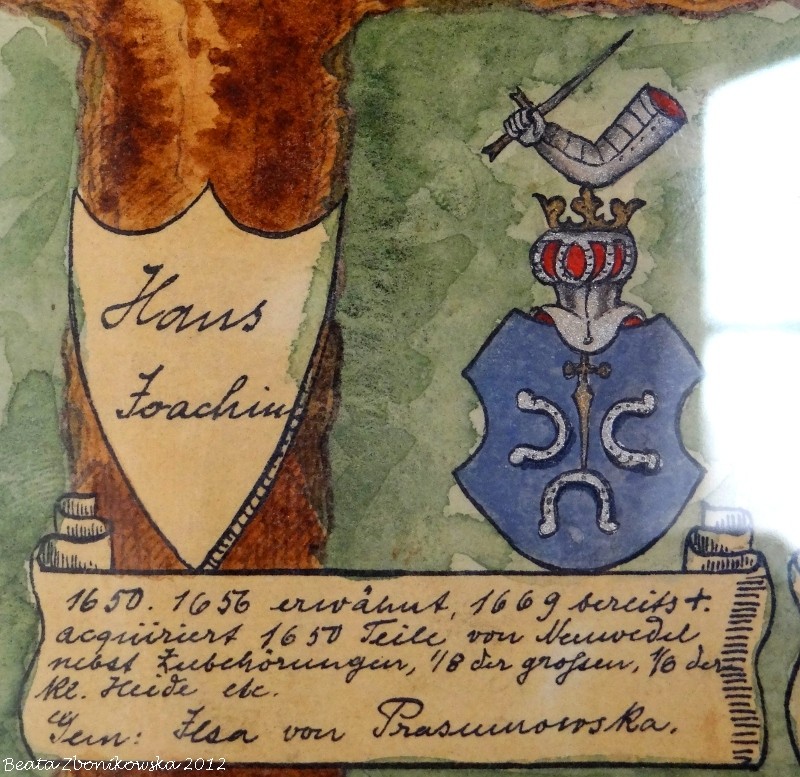 Hans
Joachim
1650. 1656 erwähnt, 1669 bereits +.
acquiriert 1650 Teile von Neuwedel
nebst Zubehörungen, 1/8 der grossen, 1/6 der
kl. Heide etc.
Gem: Ilsa von Prasumowska.
Beata Zbonikowska 2012